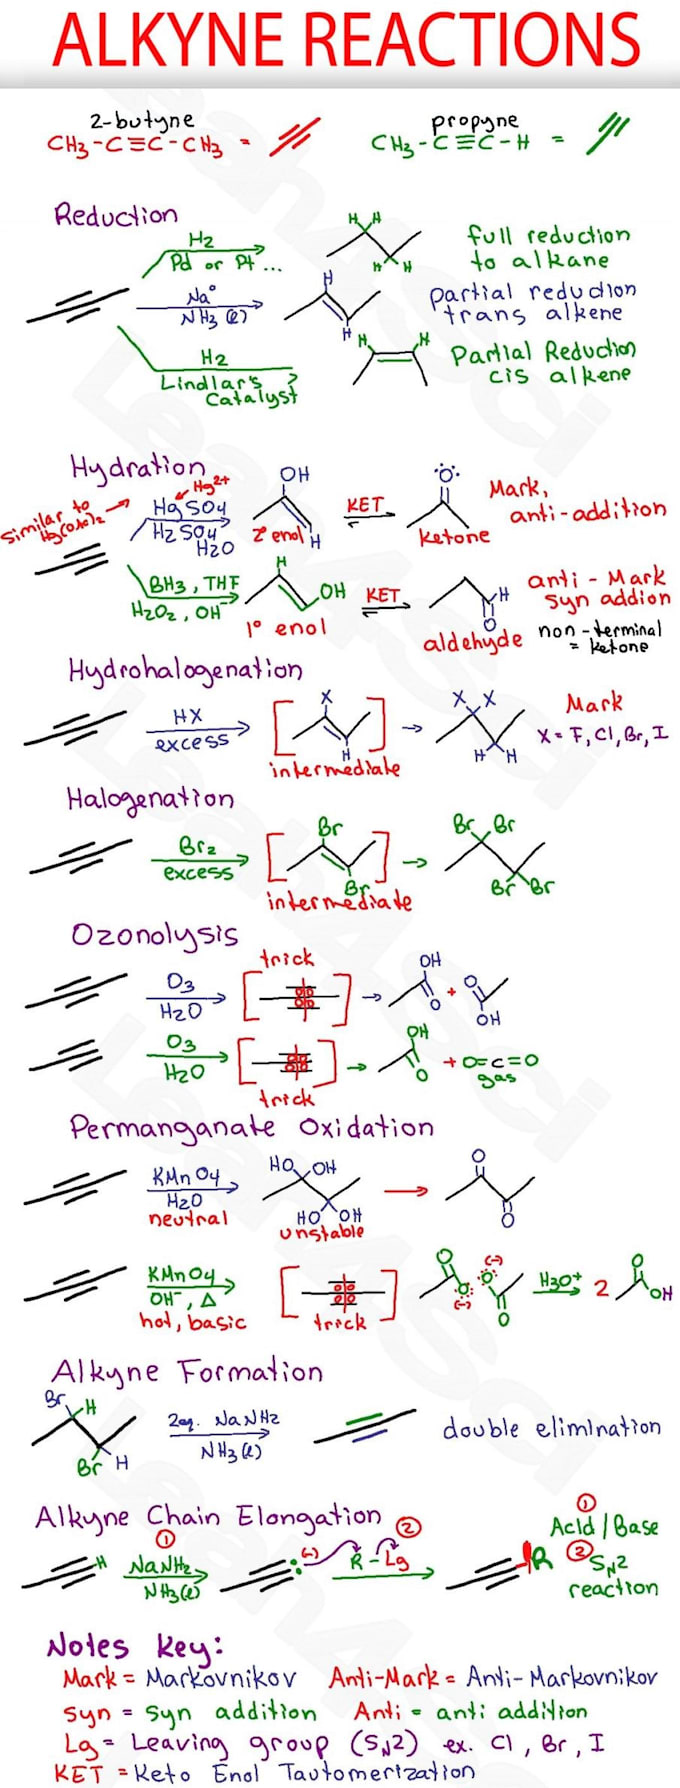 ALKYNE REACTIONS
2-butyne
CH3-C≡C-CH3 =
propyne
CH3-C≡C-H =
Reduction
H2
Pd or Pt...
H H
H H
full reduction
to alkane
Na°
NH3(l)
H
H
partial reduction
trans alkene
H2
Lindlar's
Catalyst
H H
Partial Reduction
cis alkene
Hydration
Similar to
Hg(OAc)2
Hg2+
HgSO4
H2SO4
H2O
OH
H
2° enol
KET
:O:
ketone
Mark,
anti-addition
BH3, THF
H2O2, OH-
H
OH
1° enol
KET
H
O
aldehyde
anti-Mark
syn addion
non-terminal
= ketone
Hydrohalogenation
HX
excess
X
H
intermediate
X X
H H
Mark
X = F, Cl, Br, I
Halogenation
Br2
excess
Br
Br
intermediate
Br Br
Br Br
Ozonolysis
O3
H2O
trick
OH
O
+
O
OH
O3
H2O
trick
OH
O
+ O=C=O
gas
Permanganate Oxidation
KMnO4
H2O
neutral
HO OH
HO OH
unstable
O
O
KMnO4
OH-, Δ
hot, basic
trick
O
O
(-)
O
(-)
O
H3O+
2
O
OH
Alkyne Formation
Br
H
Br H
2eq. NaNH2
NH3(l)
double elimination
Alkyne Chain Elongation
H
1
NaNH2
NH3(l)
(-)
2
R-Lg
R
1
Acid/Base
2 SN2
reaction
Notes Key:
Mark = Markovnikov Anti-Mark = Anti-Markovnikov
Syn = Syn addition Anti = anti addition
Lg = Leaving group (SN2) ex. Cl, Br, I
KET = Keto Enol Tautomerization
Leah4Sci